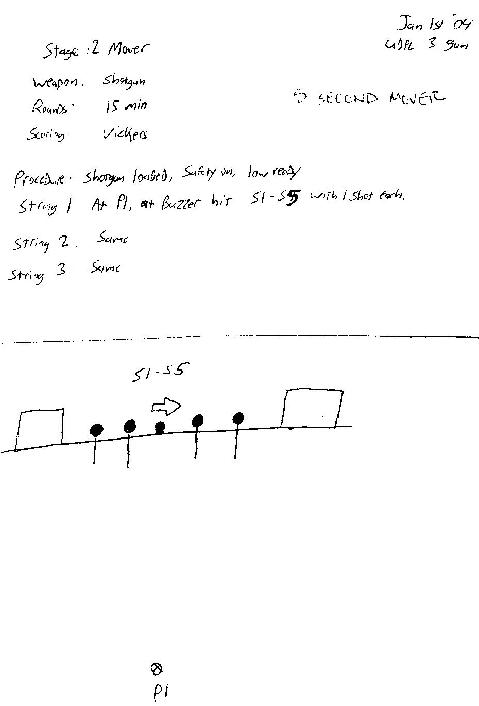 Jan 1st '04
3 Gun
Stage: 2 Mover
Weapon. Shotgun
Rounds: 15 min
Scoring Vickers
5 SECOND MOVER
Procedure: Shotgun loaded, Safety on, low ready
String 1 At P1, at Buzzer hit S1-S5 with 1 shot each.
String 2. Same
String 3 Same
S1-S5
P1